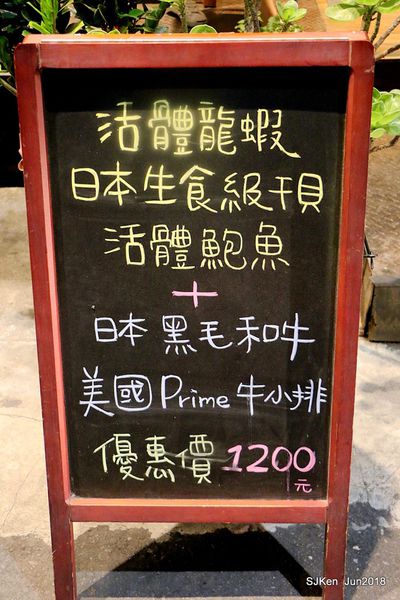 活體龍蝦
日本生食級干貝
活體鮑魚
+
日本黑毛和牛
美國Prime牛小排
優惠價1200元
SJKen Jun2018